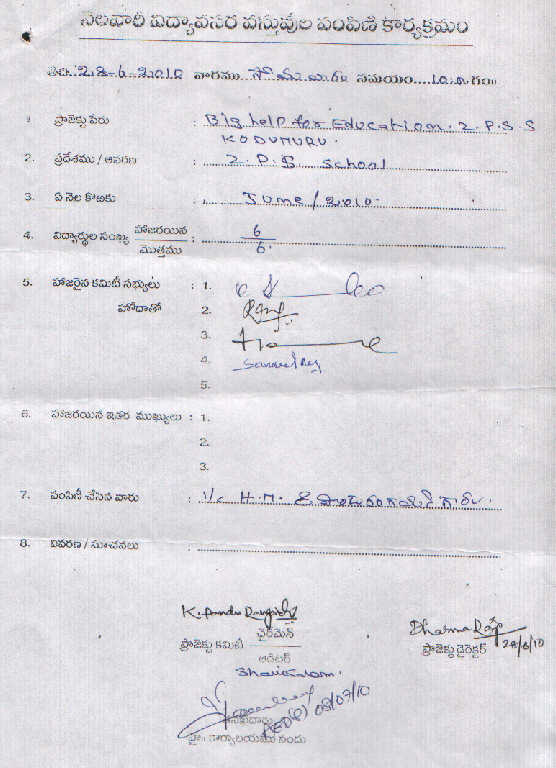 నెలవారీ విద్యావసర వస్తువుల పంపిణి కార్యక్రమం
తేది 28-6-2010 వారము సోమవారం సమయం 10.00 గం
1. ప్రాజెక్టు పేరు : Big help for Education, Z.P.S.S
KODUMURU.
2. ప్రదేశము / ఆవరణ : Z.P.S School
3. ఏ నెల కొఱకు : June / 2010.
4. విద్యార్థుల సంఖ్య హాజరయిన : 6
మొత్తము 6.
5. హాజరైన కమిటీ సభ్యులు : 1.
హోదాతో 2.
3.
4.
5.
6. హాజరయిన ఇతర ముఖ్యులు : 1.
2.
3.
7. పంపిణీ చేసిన వారు : I/c H.M.
8. వివరణ / సూచనలు :
చైర్మెన్
ప్రాజెక్టు కమిటీ
Dharma Raju
28/6/10
ప్రాజెక్టు డైరెక్టర్
ఆడిటర్
08/07/10
కార్యాలయము నందు